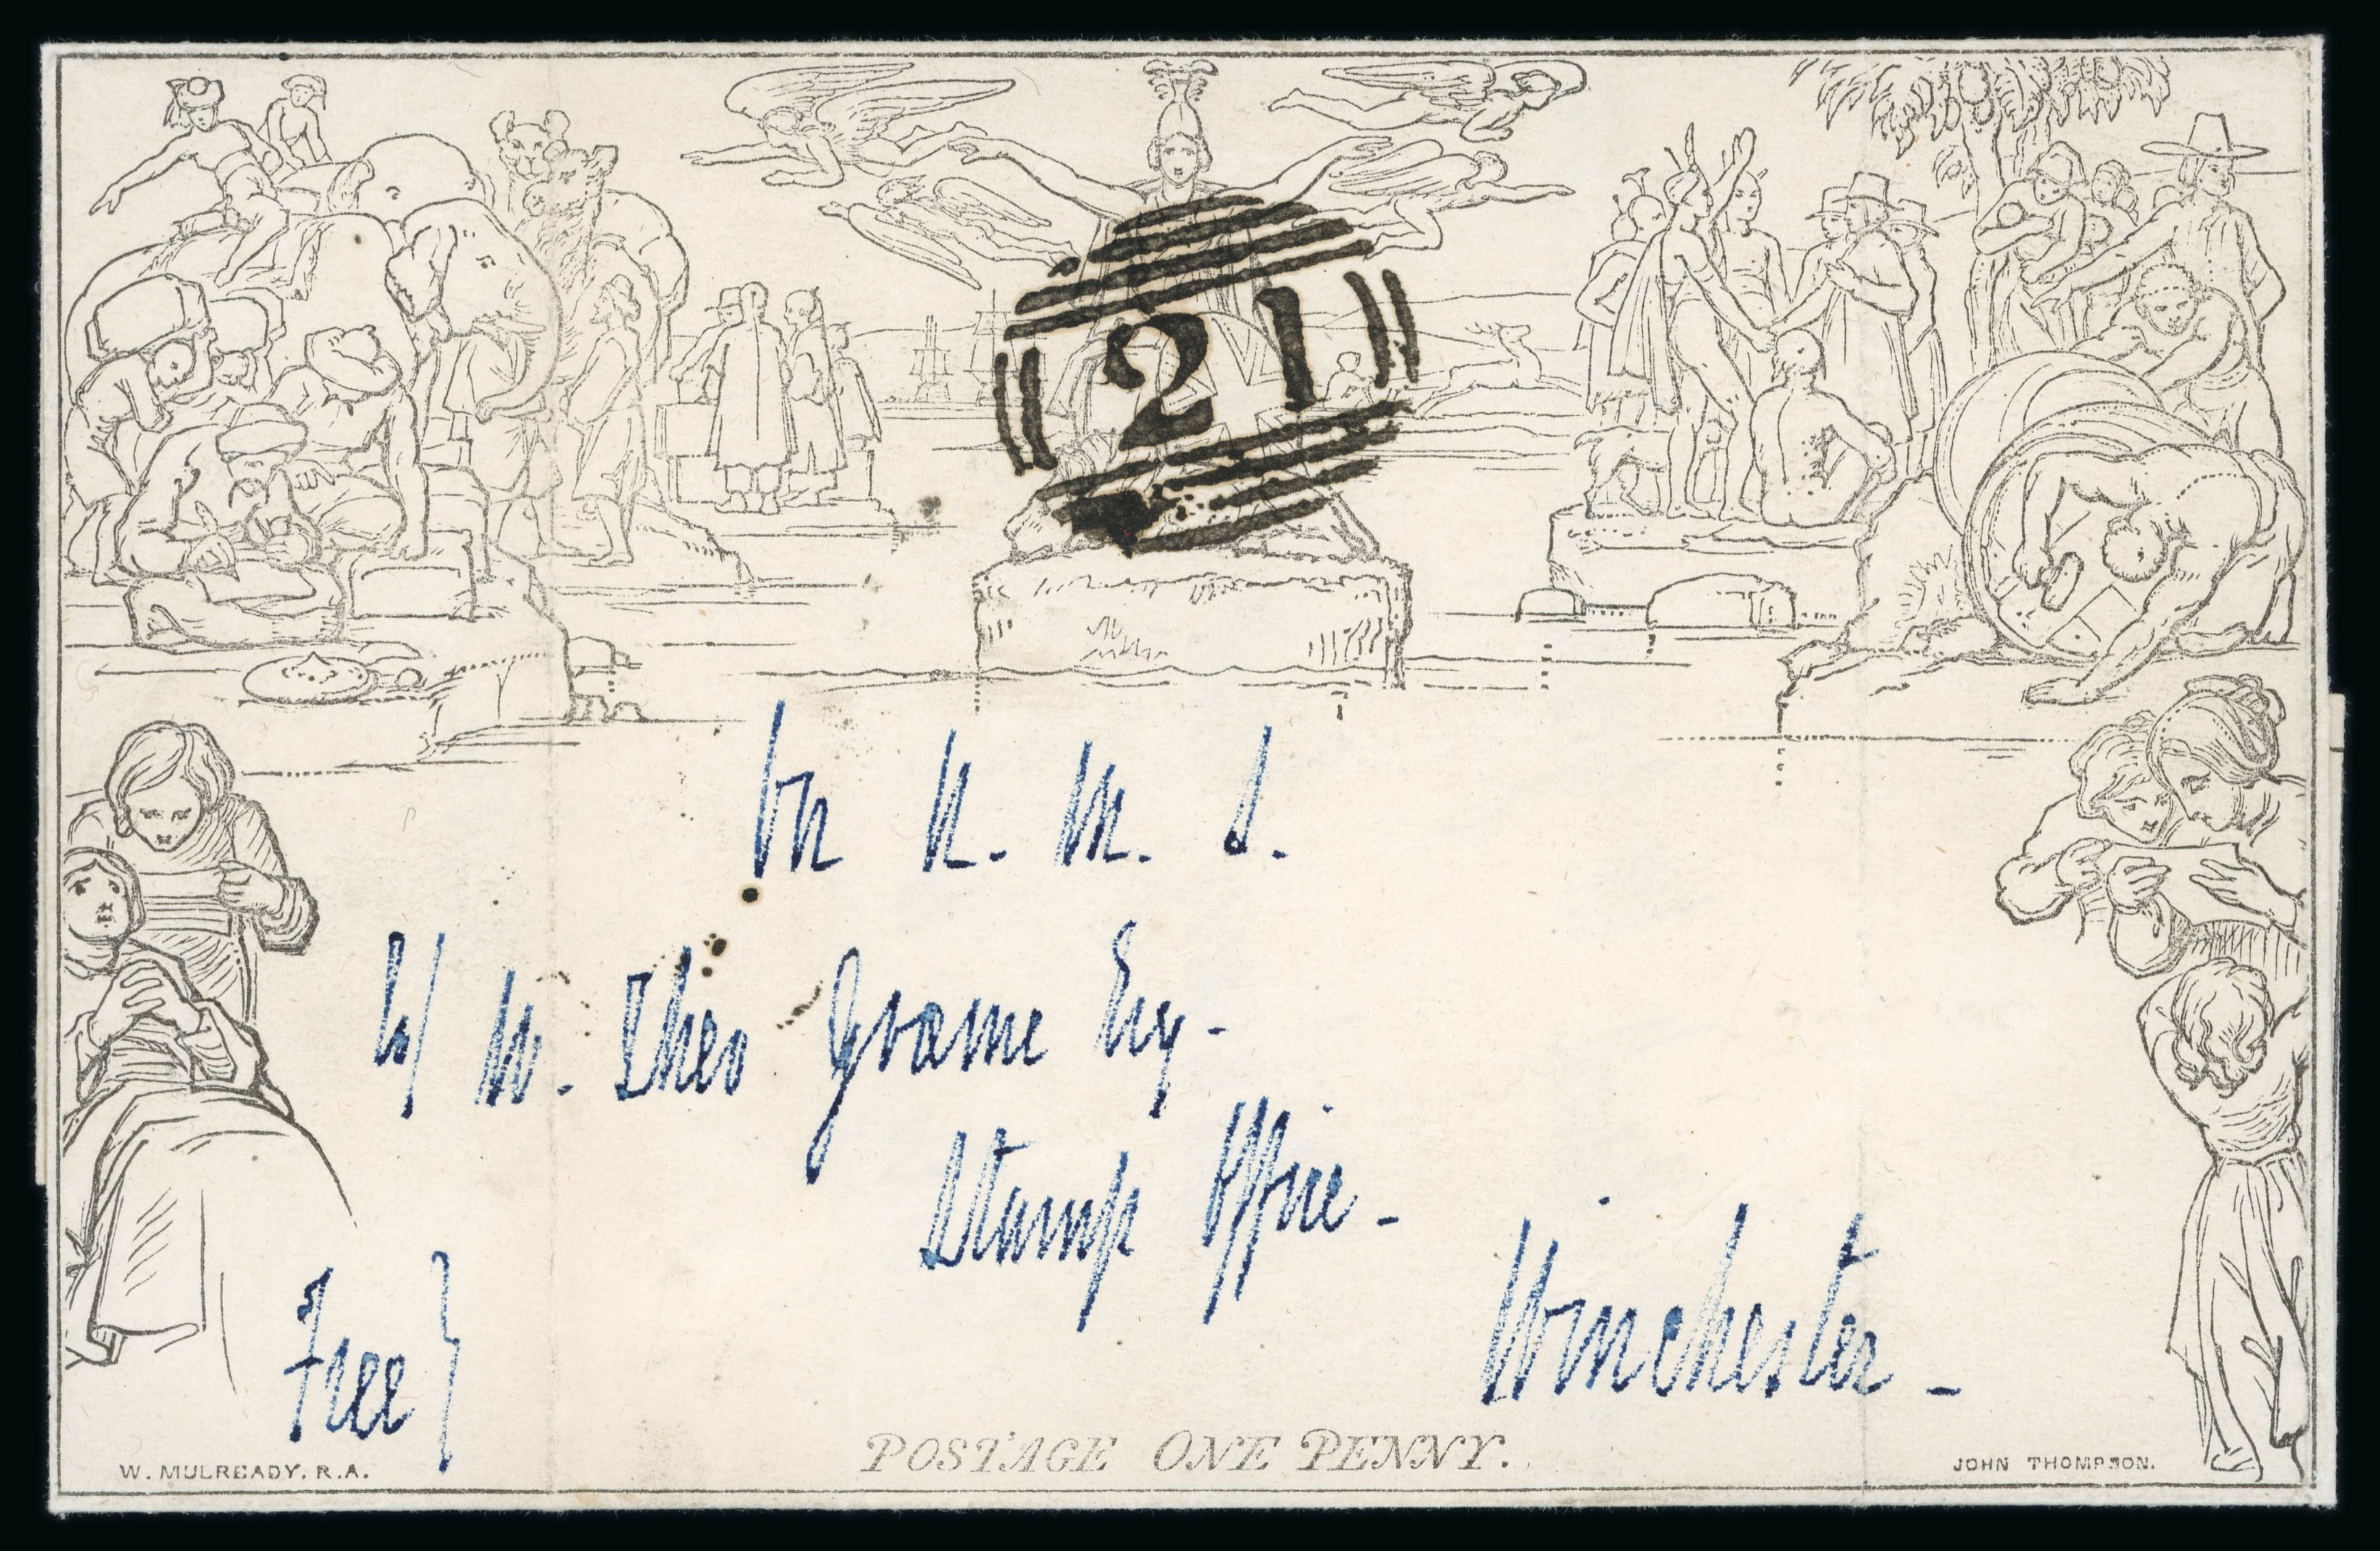 21
On H. M. S.
W. Theo Græme Esq.
Stamp Office -
Winchester -
Free}
POSTAGE ONE PENNY.
W. MULREADY. R.A.
JOHN THOMPSON.